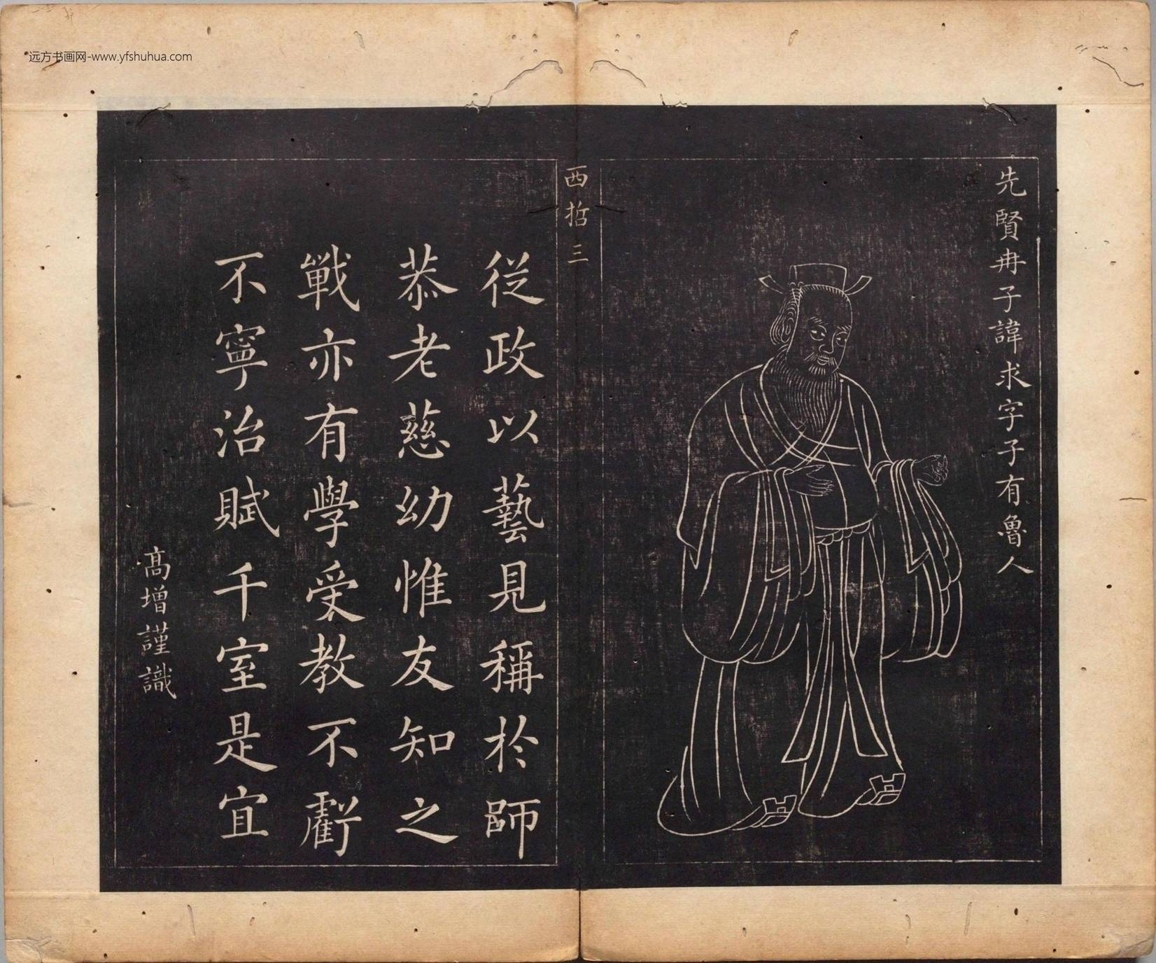 远方书画网-www.yfshuhua.com
先賢冉子諱求字子有魯人
西哲三
從政以藝見稱於師
恭老慈幼惟友知之
戰亦有學受教不虧
不寧治賦千室是宜
高增謹識